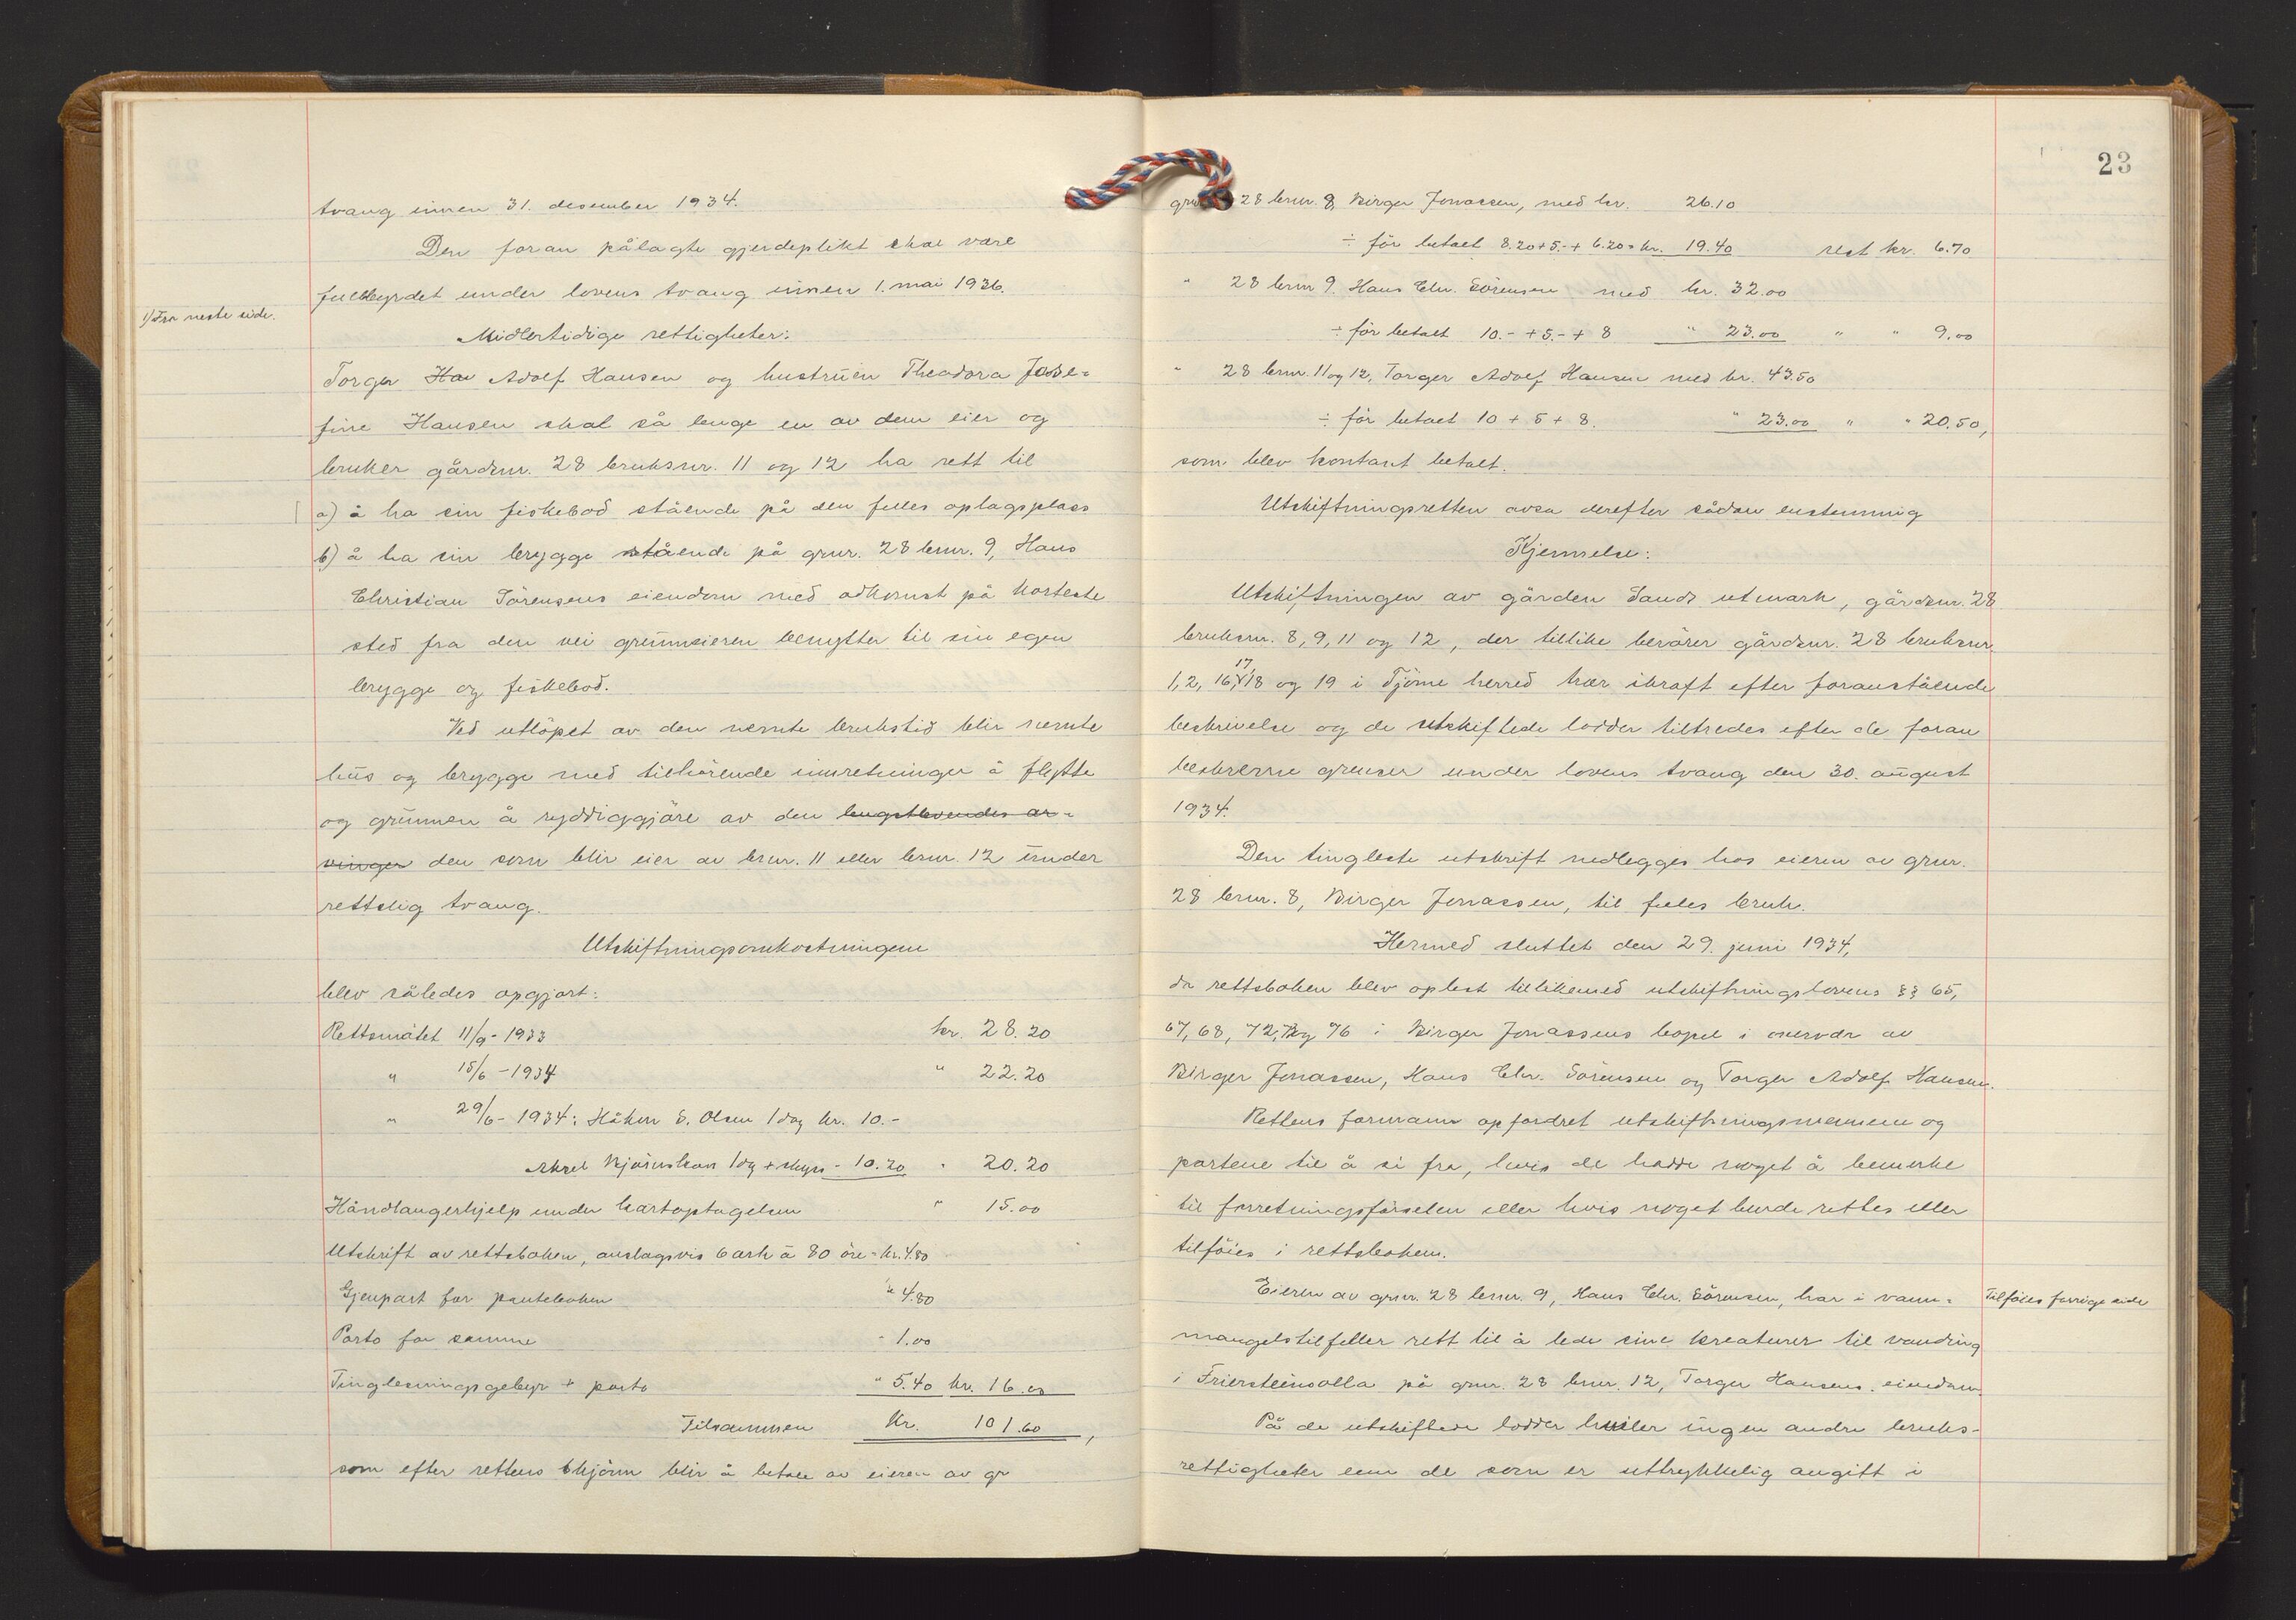 tvang innen 31. desember 1934.
Den foran pålagte gjerdeplikt skal være
fullbyrdet under lovens tvang innen 1. mai 1936.
1) Fra neste side.
Midlertidige rettigheter:
Torger Ha Adolf Hansen og hustruen Theodora Jose-
fine Hansen skal så lenge en av dem eier og
bruker gårdsnr. 28 bruksnr. 11 og 12 ha rett til
a) å ha sin fiskebod stående på den felles oplagsplass
b) å ha sin brygge stående på grnr. 28 brnr. 9, Hans
Christian Sörensens eiendom med adkomst på korteste
sted fra den vei grunneieren benytter til sin egen
brygge og fiskebod.
Ved utlöpet av den nevnte brukstid blir nevnte
hus og brygge med tilhörende innretninger å flytte
og grunnen å ryddiggjöre av den lengstlevendes ar-
vinger den som blir eier av brnr. 11 eller brnr. 12 under
rettslig tvang.
Utskiftningsomkostningene
blev således opgjort:
Rettsmötet 11/9 - 1933 kr. 28.20
" 15/6 - 1934 " 22.20
" 29/6 - 1934: Håkon S. Olsen 1 dag kr. 10.-
Aksel Bjørnskau 1 dg + skyss - 10.20 " 20.20
Håndlangerhjelp under kartoptagelsen " 15.00
Utskrift av rettsboken, anslagsvis 6 ark à 80 öre = kr. 4.80
Gjenpart for panteboken " 4.80
Porto for samme " 1.00
Tinglesningsgebyr + porto " 5.40 kr. 16.00
Tilsammen kr. 101.60,
som efter rettens skjönn blir å betale av eieren av gr
23
grnr. 28 brnr. 8, Birger Jonassen, med kr. 26.10
÷ för betalt 8.20 + 5.- + 6.20 = kr. 19.40 rest kr. 6.70
" 28 brnr 9. Hans Chr. Sörensen med kr. 32.00
÷ för betalt 10.- + 5.- + 8 " 23.00 " " 9.00
" 28 brnr. 11 og 12, Torger Adolf Hansen med kr. 43.50
÷ för betalt 10 + 5 + 8. " 23.00 " " 20.50,
som blev kontant betalt.
Utskiftningsretten avsa derefter sådan enstemmig
Kjennelse:
Utskiftningen av gården Sands utmark, gårdsnr. 28
bruksnr. 8, 9, 11 og 12, der tillike berörer gårdsnr. 28 bruksnr.
1, 2, 16, 17, 18 og 19 i Tjöme herred trær ikraft efter foranstående
beskrivelse og de utskiftede lodder tiltredes efter de foran
beskrevne grenser under lovens tvang den 30. august
1934.
Den tingleste utskrift nedlegges hos eieren av grnr.
28 brnr. 8, Birger Jonassen, til felles bruk.
Hermed sluttet den 29. juni 1934,
da rettsboken blev oplest tillikemed utskiftningslovens §§ 65,
67, 68, 72, 73 og 76 i Birger Jonassens bopel i overvær av
Birger Jonassen, Hans Chr. Sörensen og Torger Adolf Hansen.
Rettens formann opfordret utskiftningsmennene og
partene til å si fra, hvis de hadde noget å bemerke
til forretningsförselen eller hvis noget burde rettes eller
tilföies i rettsboken.
Eieren av grnr. 28 brnr. 9, Hans Chr. Sörensen, har i vann-
Tilföies forrige side
mangelstilfeller rett til å lede sine kreaturer til vandring
i Friersteinsolla på grnr. 28 brnr. 12, Torger Hansens eiendom
På de utskiftede lodder hviler ingen andre bruks-
rettigheter enn de som er uttrykkelig angitt i